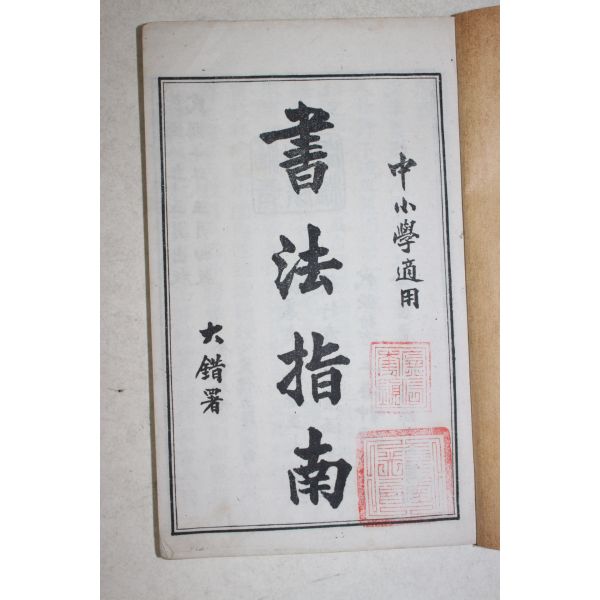 中小學適用
書法指南
大錯署